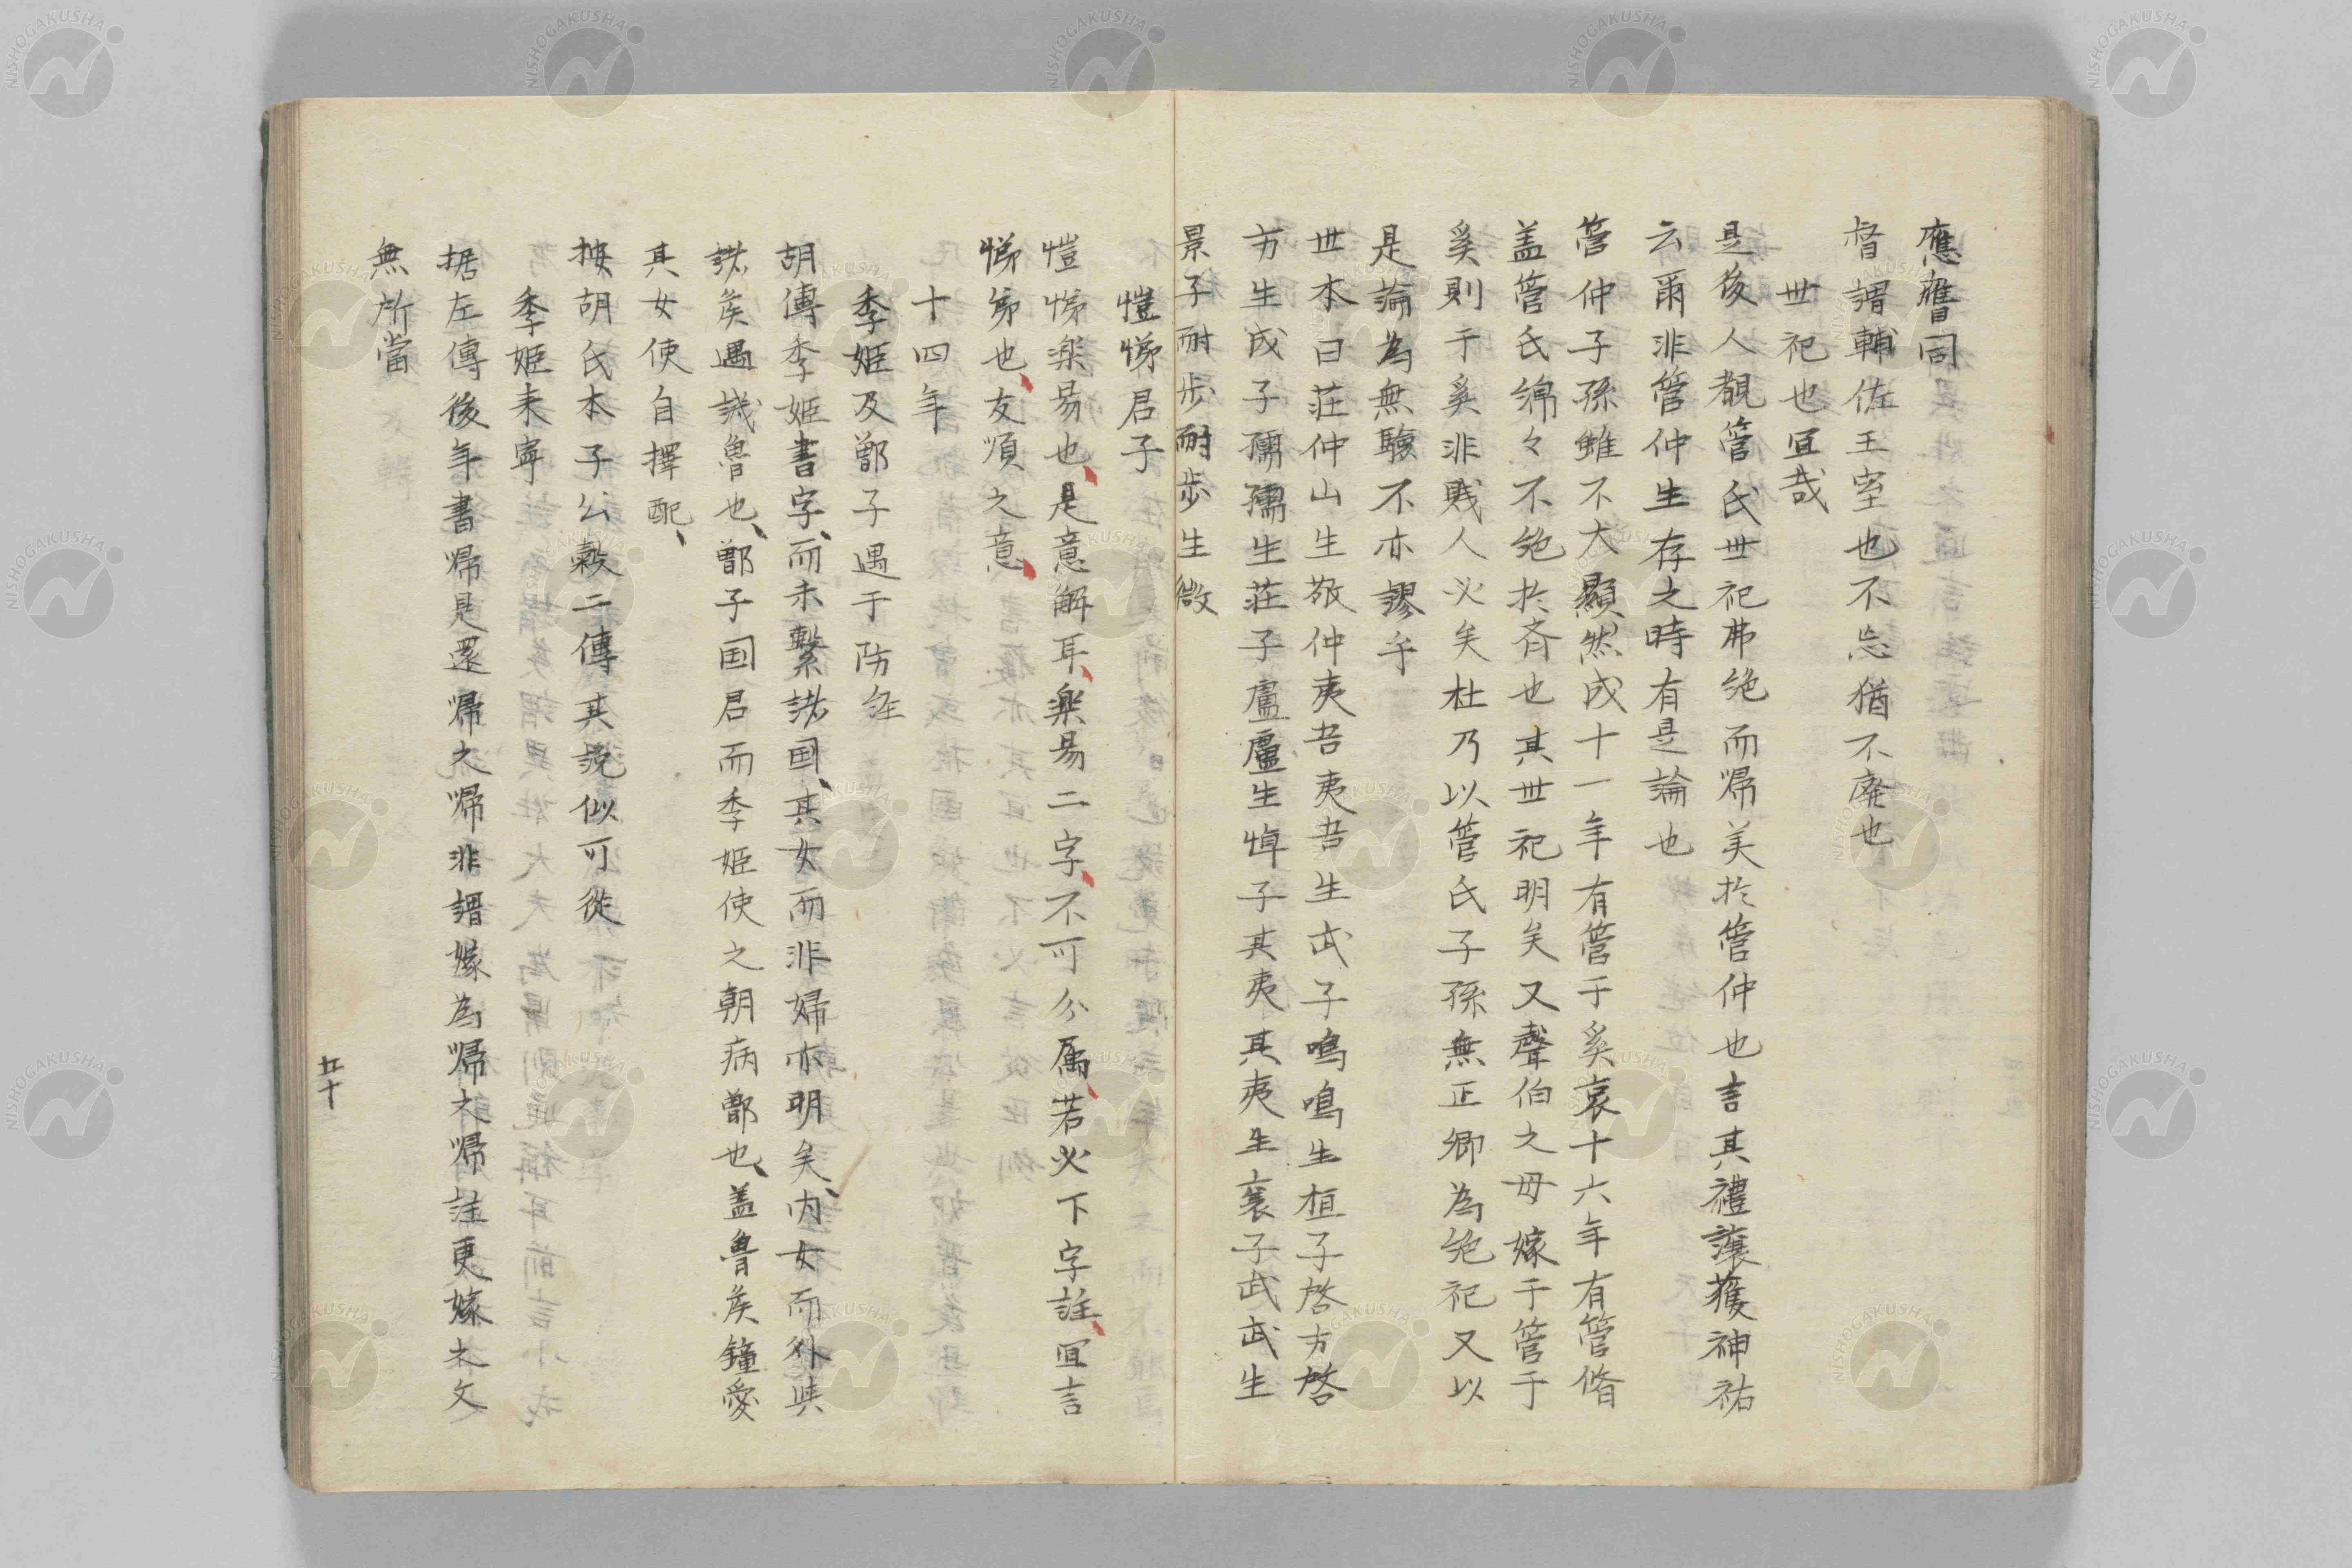 應膺同
督謂輔佐王室也不忘猶不廃也
世祀也宜哉
是後人覩管氏世祀弗絶而帰美於管仲也言其禮讓獲神祐
云爾非管仲生存之時有是論也
管仲子孫雖不大顯然成十一年有管于奚哀十六年有管脩
盖管氏綿々不絶於斉也其世祀明矣又聲伯之母嫁于管于
奚則于奚非賎人必矣杜乃以管氏子孫無正卿為絶祀又以
是論為無驗不亦謬乎
世本曰荘仲山生敬仲夷吾夷吾生武子鳴鳴生桓子啓方啓
方生成子孺孺生荘子盧盧生悼子其夷其夷生襄子武武生
景子耐歩耐歩生微
愷悌君子
愷悌楽易也是意解耳楽易二字不可分属若必下字註宜言
悌弟也友順之意
十四年
季姫及鄫子遇于防経
胡傳季姫書字而未繫諸国其女而非婦亦明矣内女而外與
諸侯遇譏魯也鄫子国君而季姫使之朝病鄫也盖魯侯鐘愛
其女使自擇配
按胡氏本子公穀二傳其説似可從
季姫来寧
据左傳後年書帰是還帰之帰非謂嫁為帰之帰註更嫁之文
無所當
五十
NISHOGAKUSHA